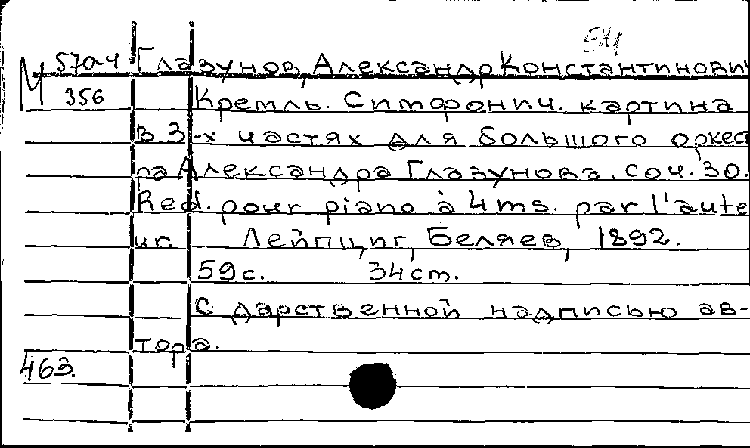 М 570-4 Глазунов, Александр Константинович
356 Кремль. Симфонич. картина
в 3-х частях для большого оркес
ра Александра Глазунова. соч. 30.
Red. pour piano à 4 ms. par l'aute
ur. Лейпциг, Беляев, 1892.
59 с. 34 cm.
С дарственной надписью ав-
тора.
463.